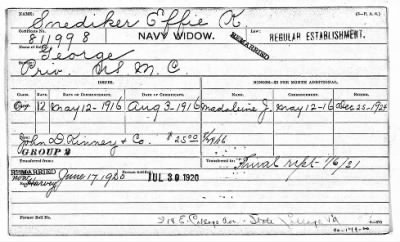 NAME: Snediker Effie K. (3-P. A. G.)
Certificate No. Law:
811998 NAVY WIDOW. REMARRIED REGULAR ESTABLISHMENT.
Name of Soldier:
George
Service:
Priv. U.S.M.C.
ISSUES. MINORS—$2 PER MONTH ADDITIONAL.
CLASS. RATE. DATE OF COMMENCEMENT. DATE OF CERTIFICATE. NAMES. COMMENCEMENT. ENDING.
Orig 12 May 12-1916 Aug 3-1916 Madaleine J. May 12-16 Dec 25-1924
John D. Kinney & Co. $25.00
GROUP 2
Transferred from: Transferred to:
Final rept 1/6/21
REMARRIED
Harvey June 17, 1920 JUL 30 1920
Former Roll No. 218 E. College Ave. - State College Pa